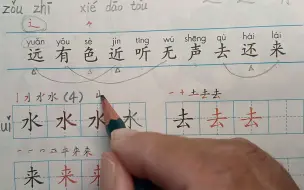 zǒu zhī xié dāo tāo
i 4
yuǎn yǒu sè jìn tīng wú shēng qù hái lái
远有色近听无声去还来
(4) 4
水水水水 去去去
来来来